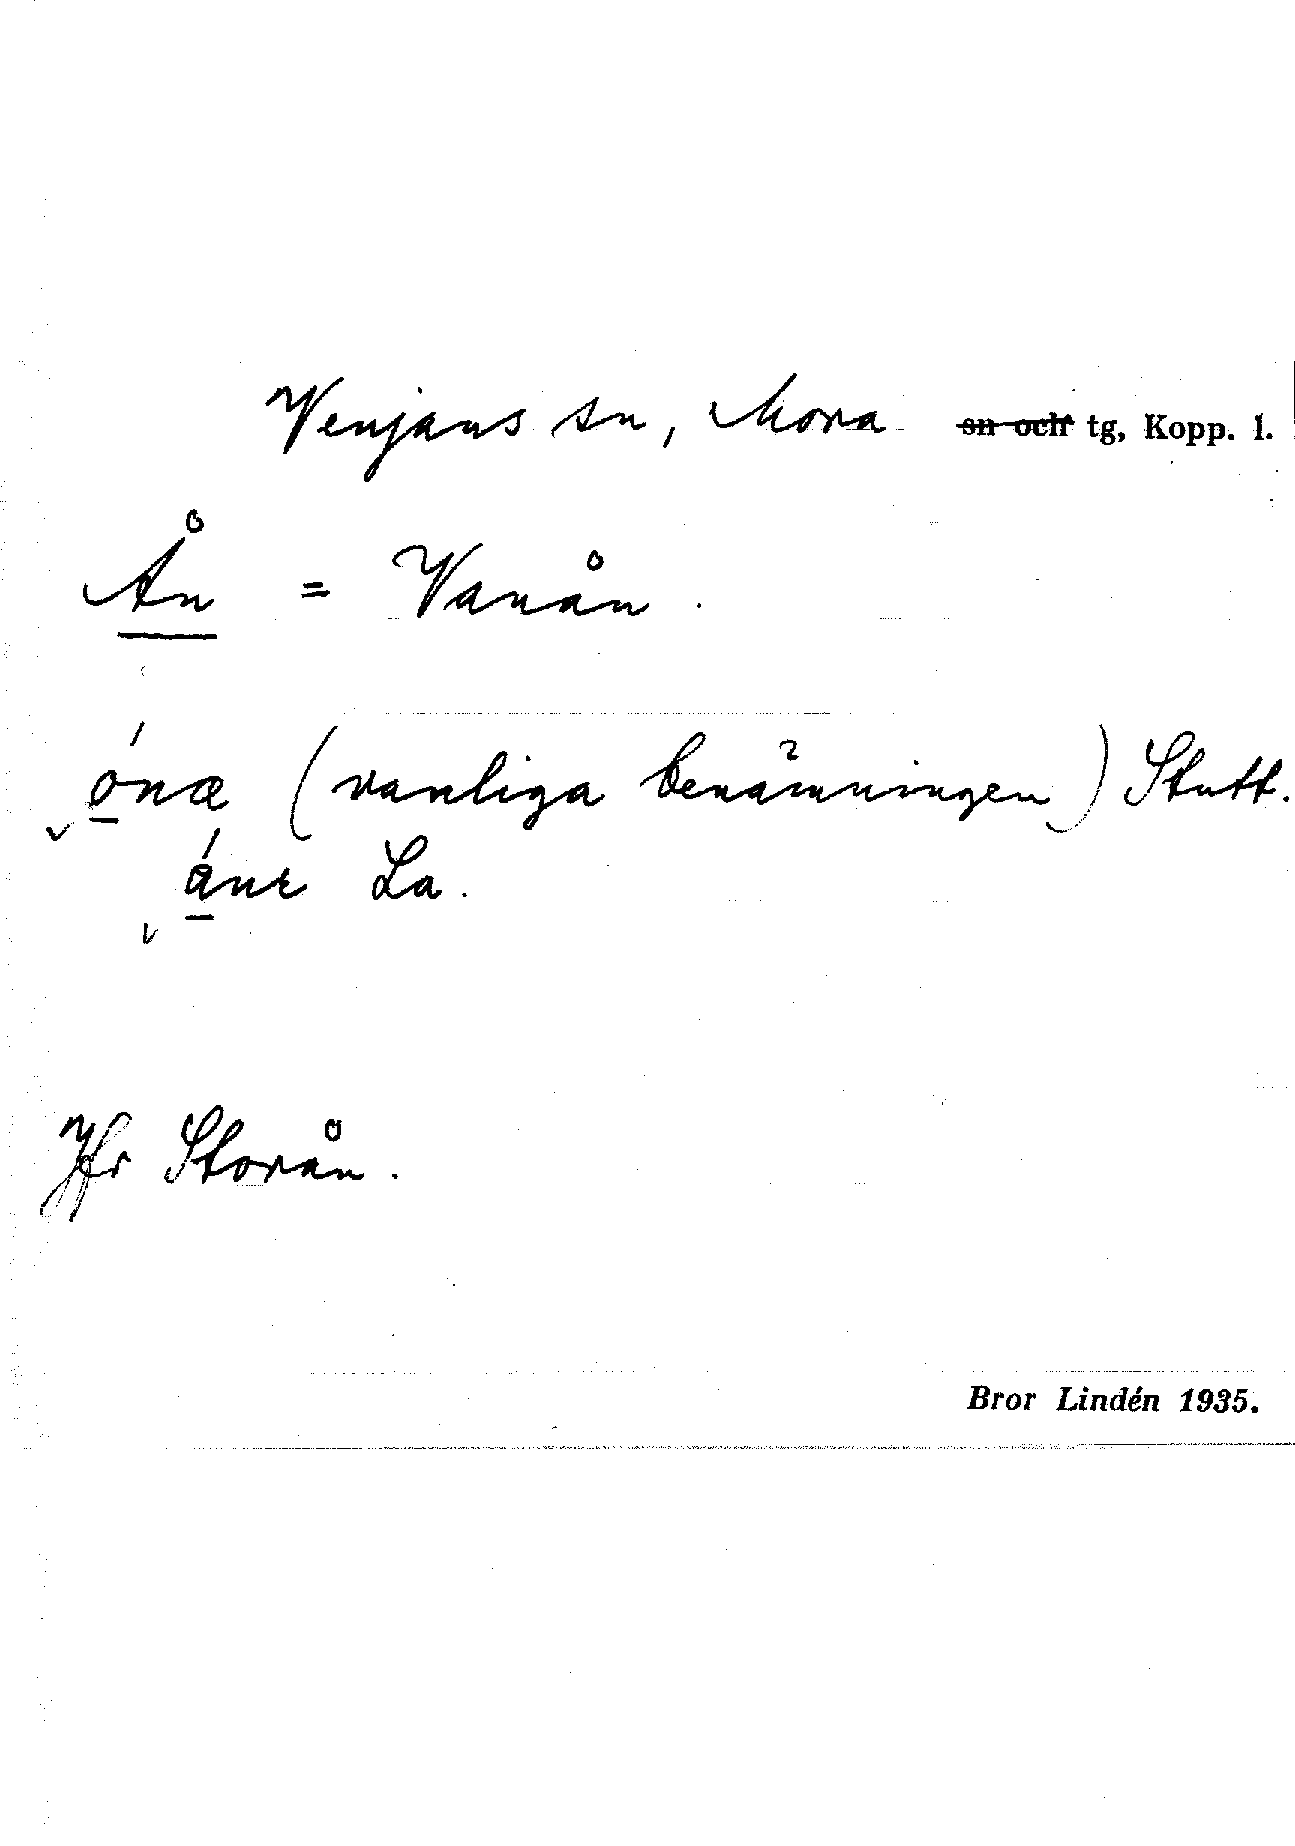 Venjans sn, Mora sn och tg, Kopp. l.
Ån = Vanån.
ónæ (vanliga benämningen) Stutt.
ánɛ La.
Jfr Storån.
Bror Lindén 1935.